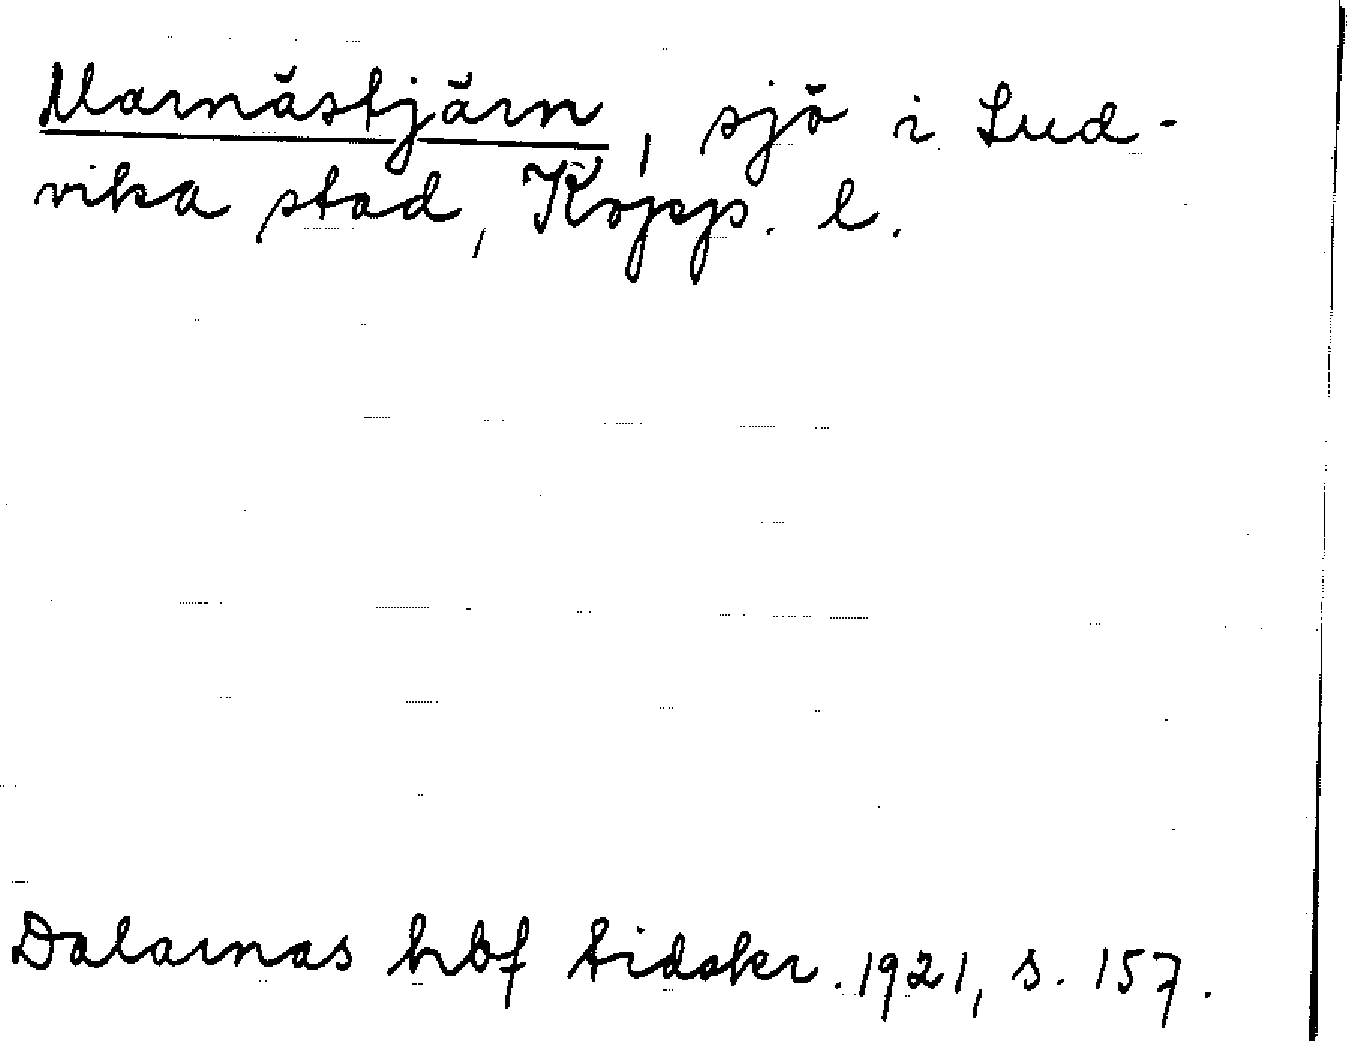 Marnästjärn, sjö i Lud-
vika stad, Kopp. l.
Dalarnas hbf tidskr. 1921, s. 157.